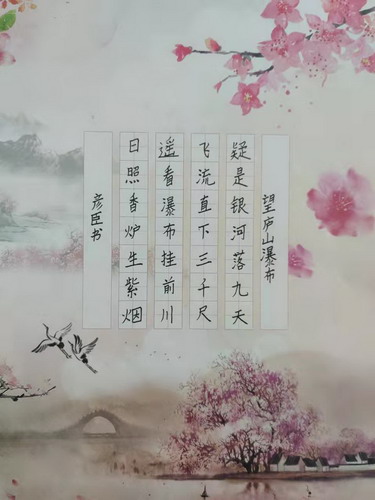 望庐山瀑布
疑是银河落九天
飞流直下三千尺
遥看瀑布挂前川
日照香炉生紫烟
彦臣书